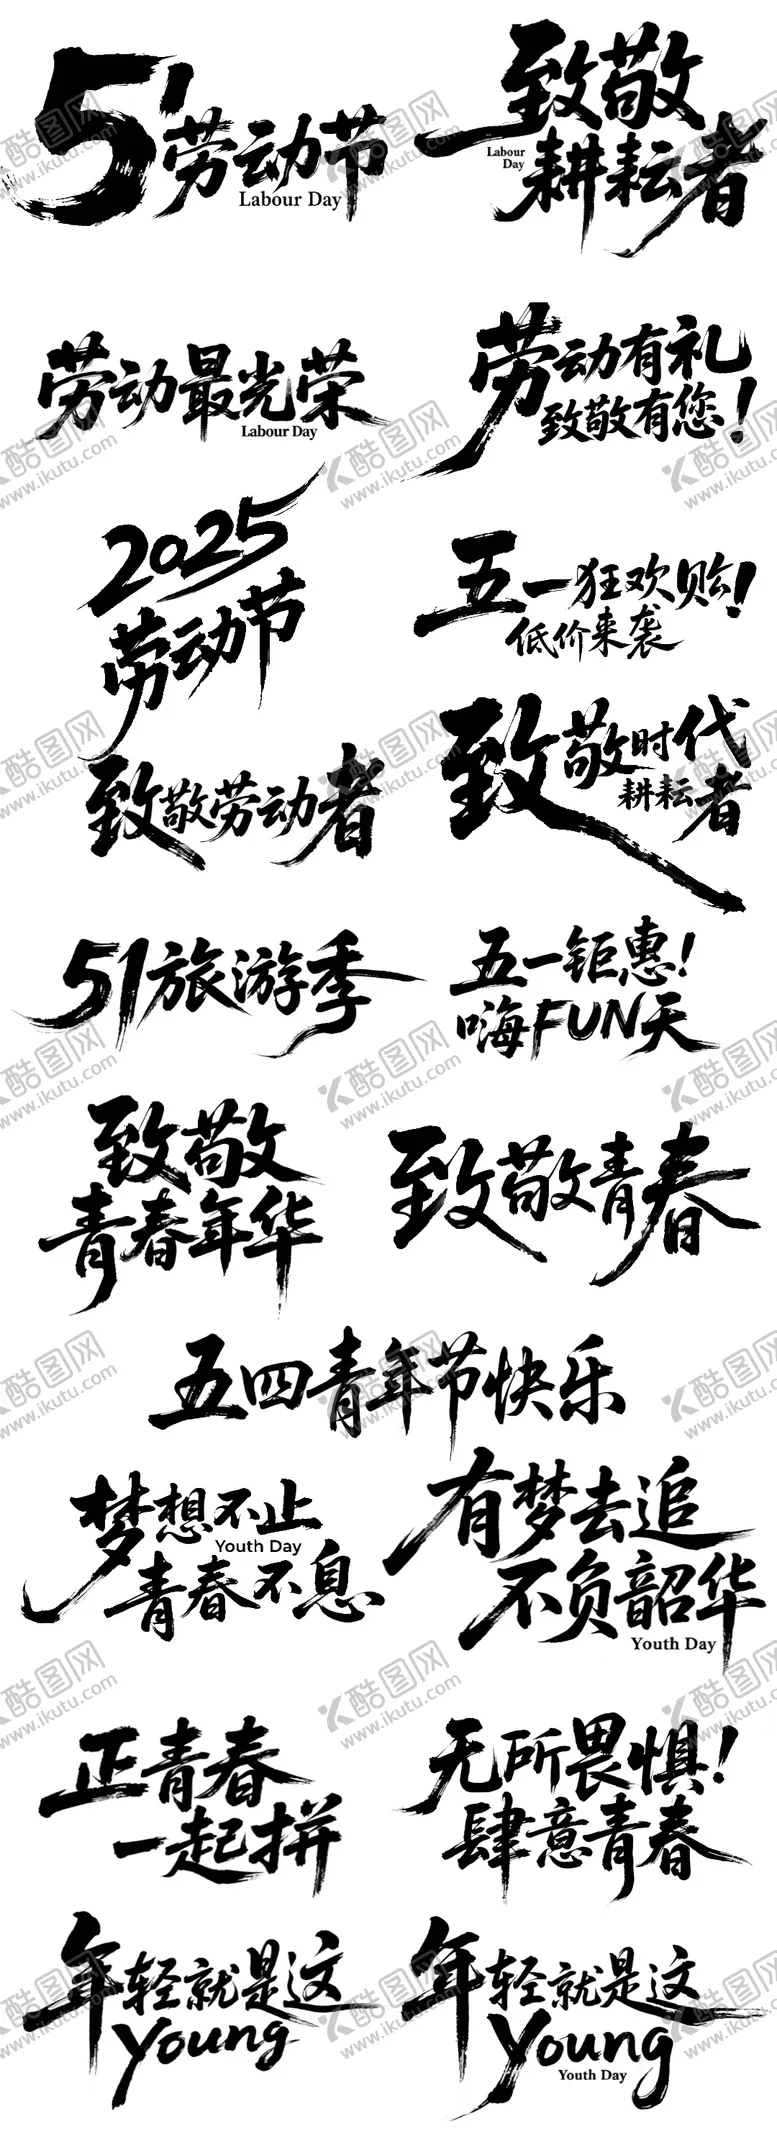 51劳动节
Labour Day
致敬
Labour
Day
耕耘者
劳动最光荣
Labour Day
劳动有礼
致敬有您！
2025
劳动节
五一狂欢购！
低价来袭
致敬劳动者
致敬时代
耕耘者
51旅游季
五一钜惠！
嗨FUN天
致敬
青春年华
致敬青春
五四青年节快乐
梦想不止
Youth Day
青春不息
有梦去追
不负韶华
Youth Day
正青春
一起拼
无所畏惧！
肆意青春
年轻就是这
Young
年轻就是这
Young
Youth Day
酷图网
www.ikutu.com